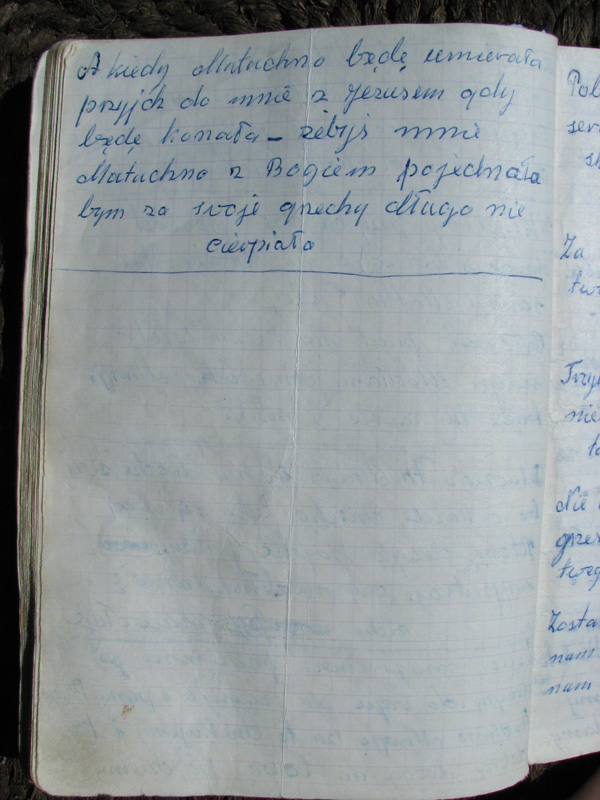 A kiedy Matuchno będę umierała
przyjdź do mnie z Jezusem gdy
będę konała – żebyś mnie
Matuchno z Bogiem pojednała
bym za swoje grzechy długo nie
cierpiała
Za
nie
Nie
Zosta
nam
nam